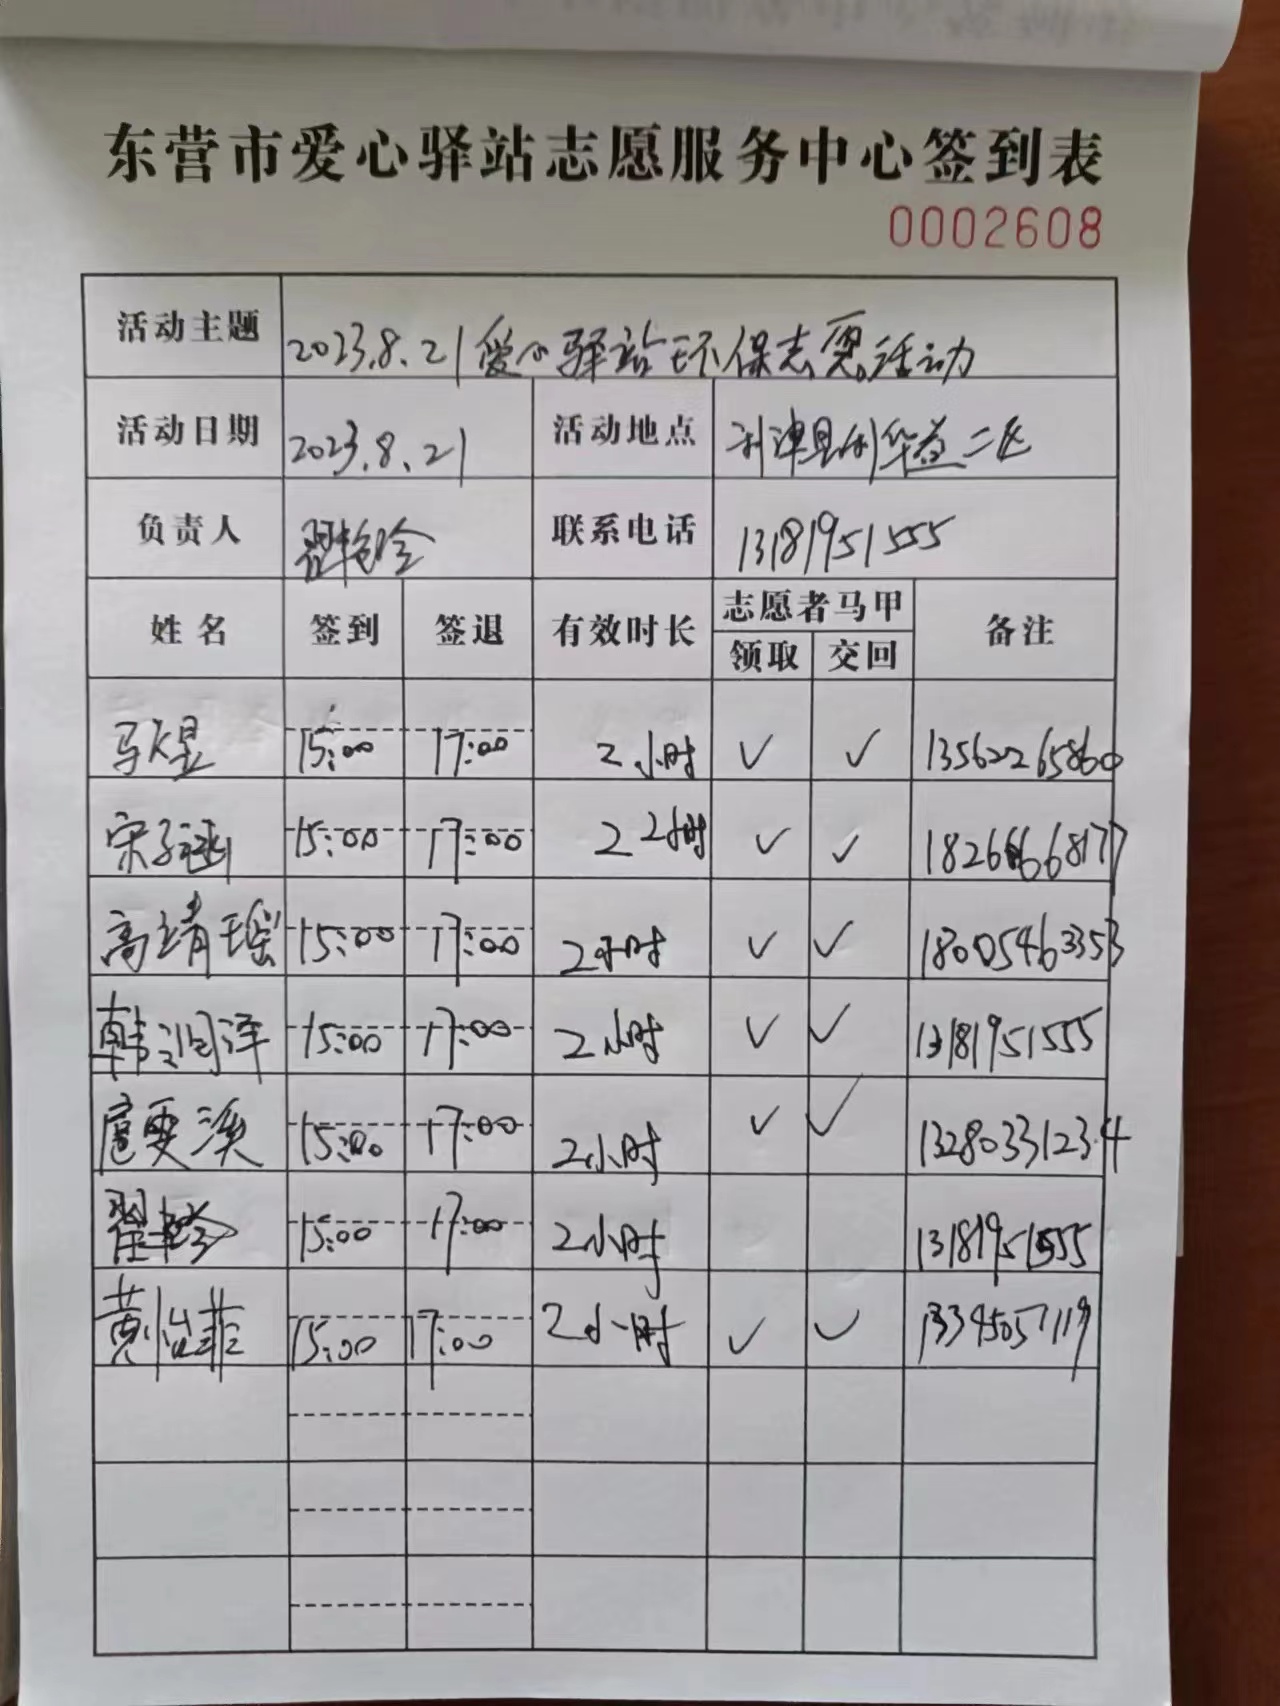 东营市爱心驿站志愿服务中心签到表
0002608
活动主题 2023.8.21爱心驿站环保志愿活动
活动日期 2023.8.21 活动地点 利津县利华益二区
负责人 翟艳玲 联系电话 13181951555
姓名 签到 签退 有效时长 志愿者马甲 备注
领取 交回
马煜 15:00 17:00 2小时 ✓ ✓ 13562265860
宋子涵 15:00 17:00 2小时 ✓ ✓ 18266668177
高靖瑶 15:00 17:00 2小时 ✓ ✓ 18005463353
韩润泽 15:00 17:00 2小时 ✓ ✓ 13181951555
扈雯淇 15:00 17:00 2小时 ✓ ✓ 13280331234
翟艳玲 15:00 17:00 2小时 13181951555
黄怡菲 15:00 17:00 2小时 ✓ ✓ 13345057119